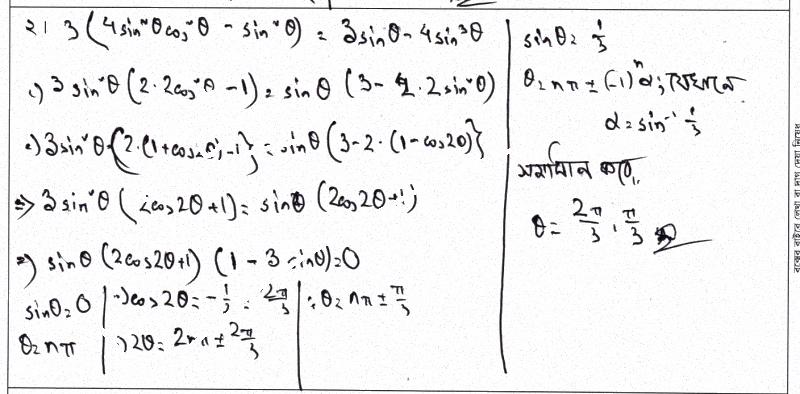 ২। 3 (4sin²θcos²θ - sin²θ) = 3sinθ - 4sin³θ
⇒ 3sin²θ (2·2cos²θ - 1) = sinθ (3 - 2·2sin²θ)
⇒ 3sin²θ {2·(1+cos2θ)-1} = sinθ {3-2·(1-cos2θ)}
⇒ 3sin²θ (2cos2θ+1) = sinθ (2cos2θ+1)
⇒ sinθ (2cos2θ+1) (1 - 3sinθ) = 0
sinθ = 0 | ⇒ cos2θ = -1/2 = 2π/3 | ∴ θ = nπ ± π/3
θ = nπ | ⇒ 2θ = 2nπ ± 2π/3
sinθ = 1/3
θ = nπ ± (-1)ⁿα; যেখানে
α = sin⁻¹ 1/3
সমাধান করে,
θ = 2π/3, π/3